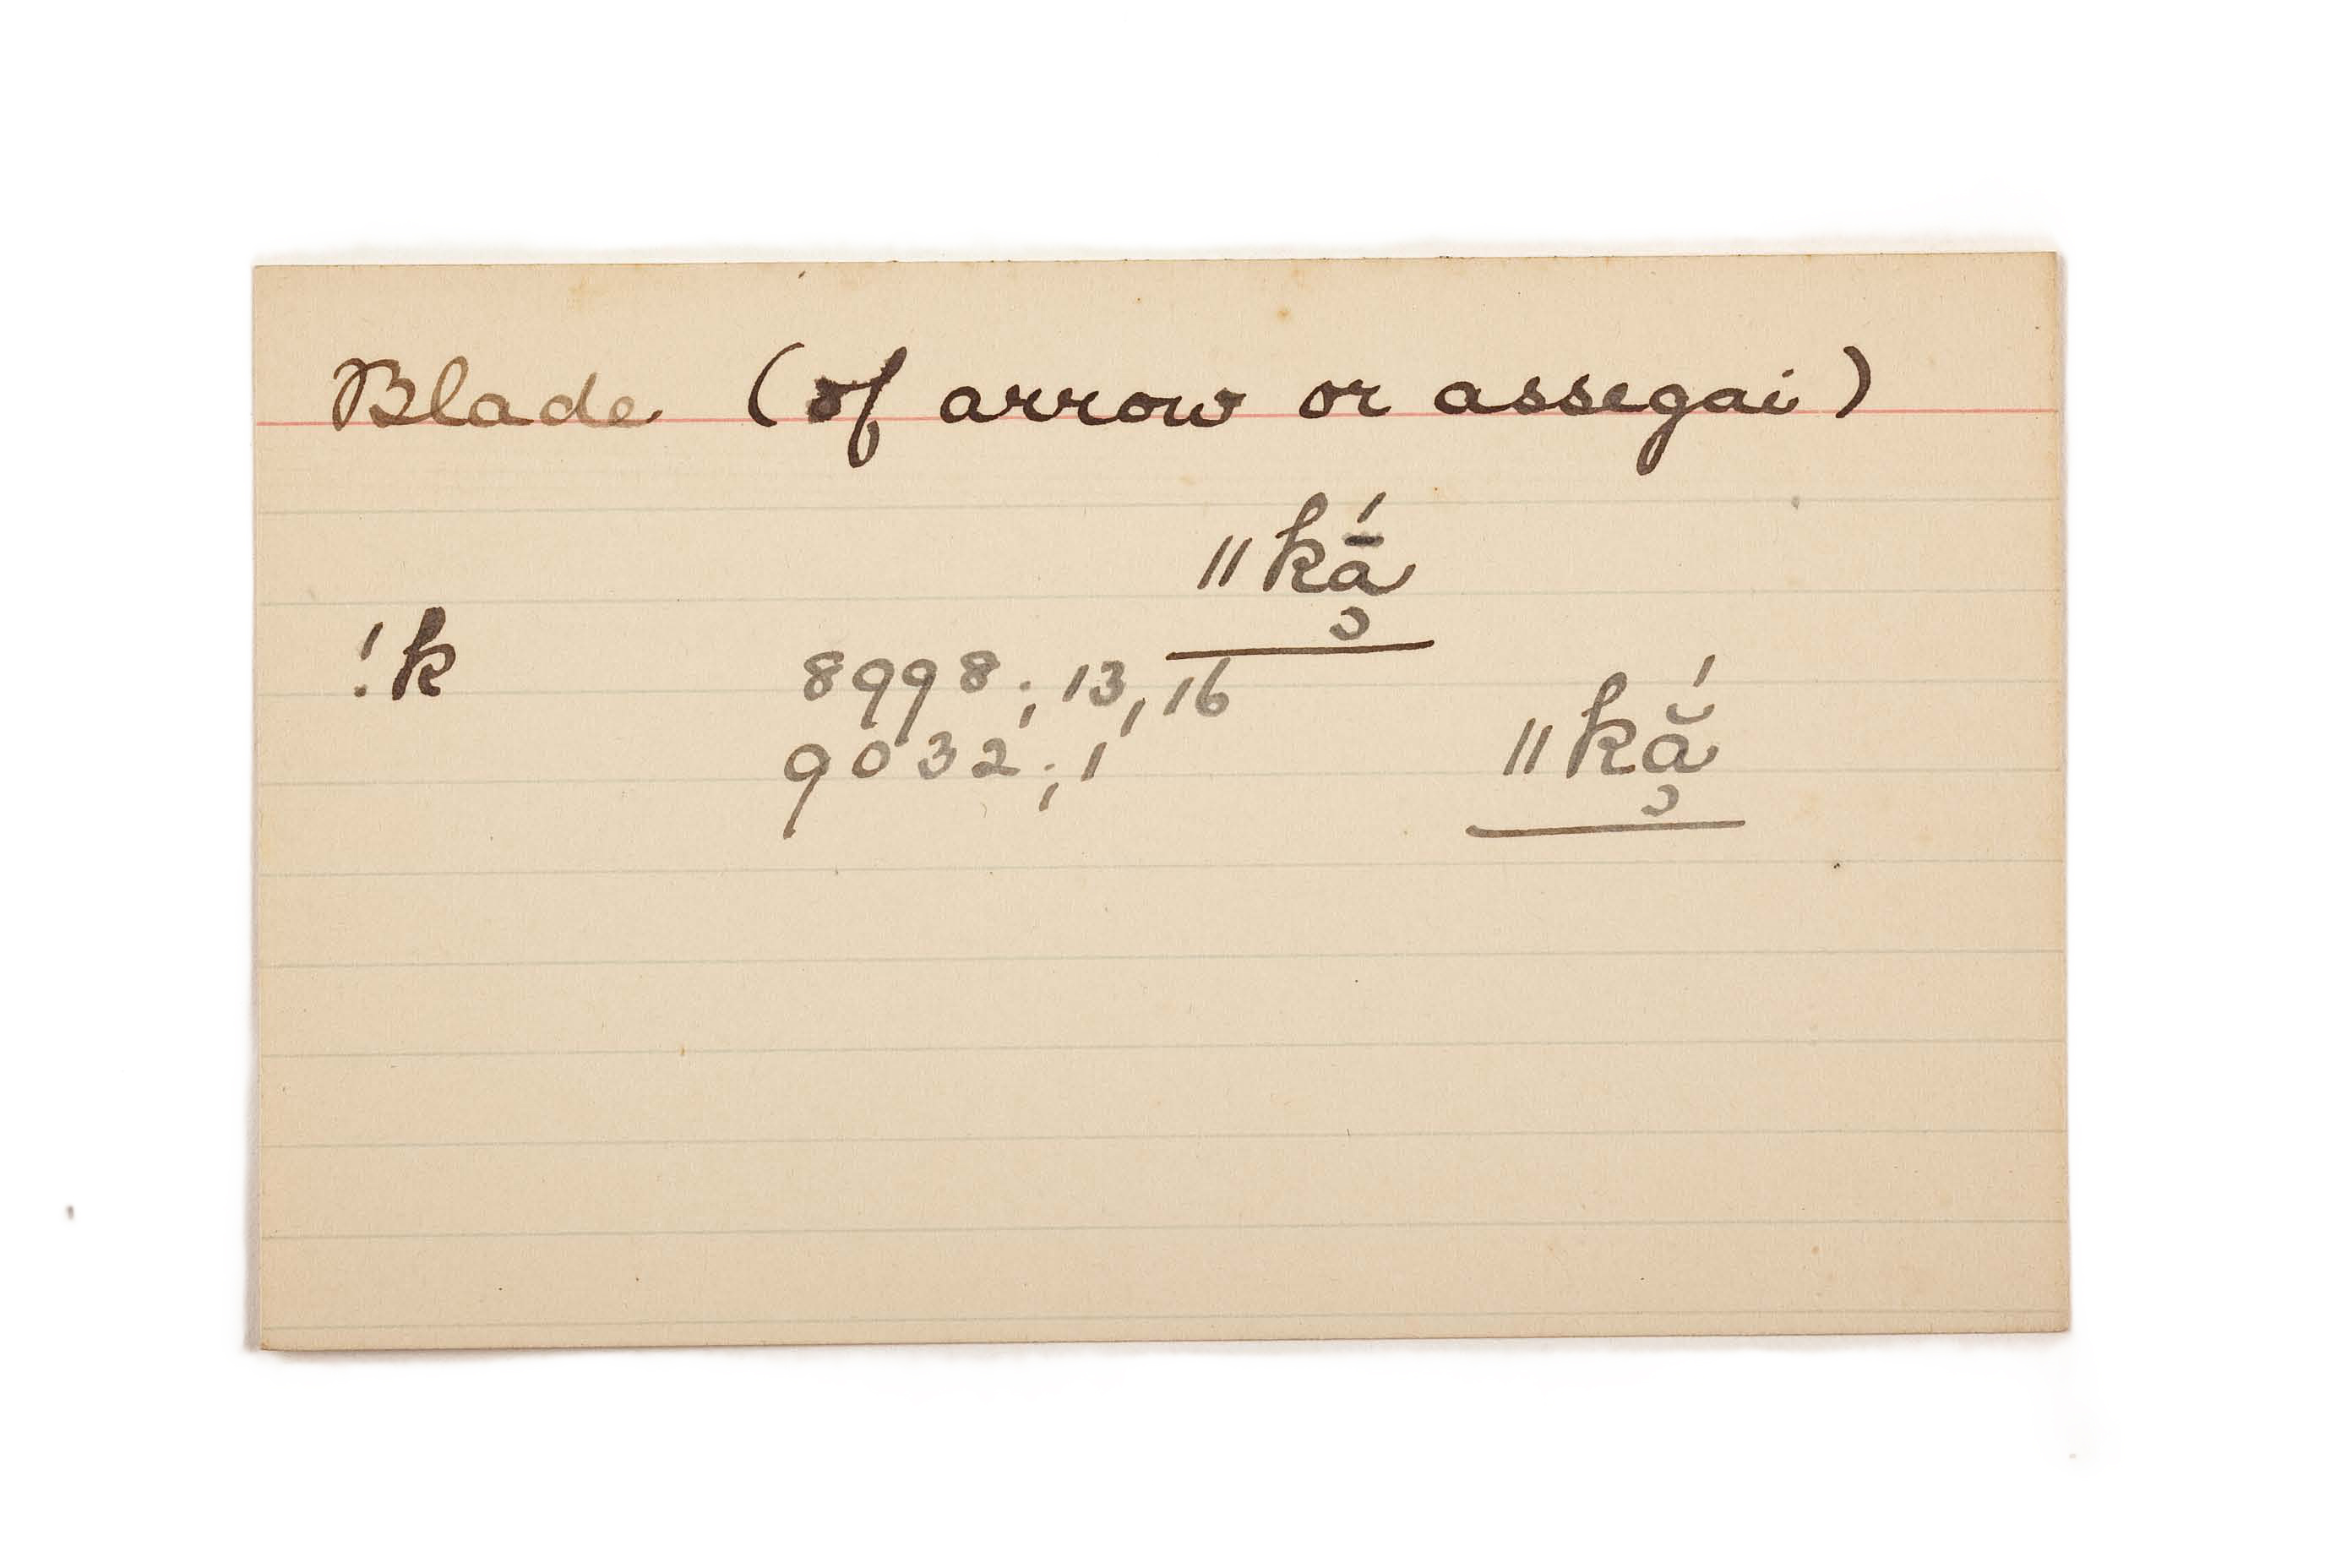 Blade (of arrow or assegai)
ǁkā̹́
!k 8998; 13, 16
9032; 1 ǁkắ̹